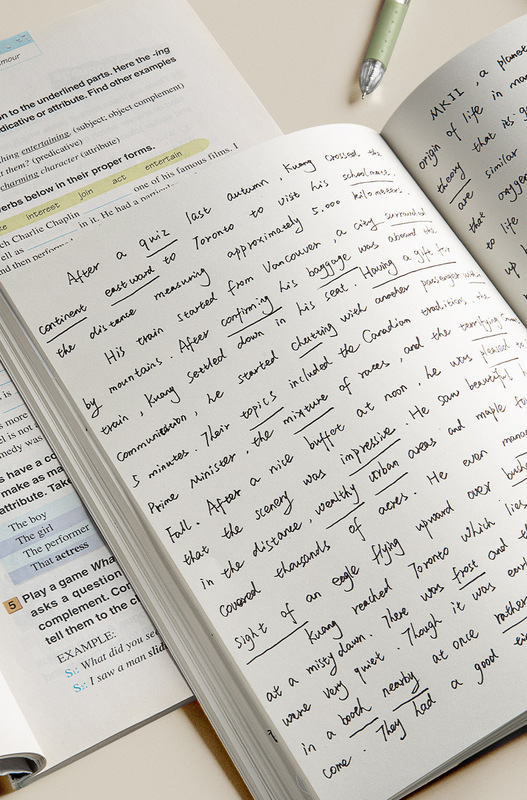 amour
n to the underlined parts. Here the -ing
redicative or attribute. Find other examples
entertaining (subject; object complement)
them? (predicative)
charming character (attribute)
erbs below in their proper forms.
interest join act entertain
ch Charlie Chaplin one of his famous films. I
ell as in it. He had a
and then
is
s more
el is not a
medy was
s have a co
make as ma
attribute. Take
The boy
The girl
The performer
That actress
5 Play a game Wha
asks a question
complement. Con
tell them to the c
EXAMPLE:
S₁: What did you see
S₂: I saw a man slid
After a quiz last autumn, Kuang crossed the
continent eastward to Toronto to vist his schoolmate.
the distance measuring approximately 5.000 kilometers
His train started from Vancouver, a city surrounded
by mountains. After confirming his baggage was aboard the
train, Kuang settled down in his seat. Having a gift for
communication, he started chatting with another passenger
5 minutes. Their topics included the Canadian traditions, the
Prime minister, the mixture of races, and the terrifying
Fall. After a nice buffet at noon, he was pleased
that the scenery was impressive. He saw beautiful
in the distance, wealthy urban areas and maple
covered thousands of acres. He even
sight of an eagle flying upward over
Kuang reached Toronto which lies
at a misty dawn. There was frost and
were very quiet. Though it was
in a booth nearby at once rather
come. They had a good
MKII, a planet
origin of life in
theory that
are similar
that oxygen
to life
up